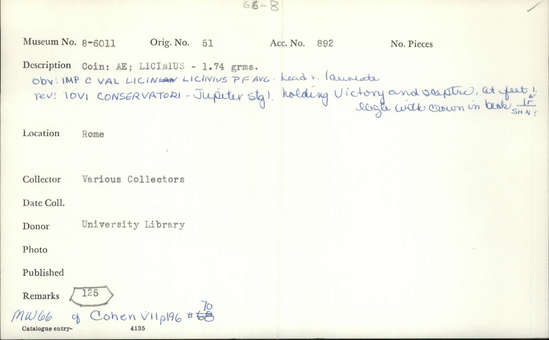 66-B
Museum No. 8-6011 Orig. No. 51 Acc. No. 892 No. Pieces
Description Coin: AE; LICINIUS - 1.74 grms.
obv: IMP C VAL LICINIAN LICINIUS P F AVG - head r. laureate
rev: IOVI CONSERVATORI - Jupiter stg l. holding Victory and sceptre, at feet l.
eagle with crown in beak
Location Rome
Collector Various Collectors
Date Coll.
Donor University Library
Photo
Published
Remarks 125
70
MW66 cf Cohen VII p196 # 68
Catalogue entry- 4135